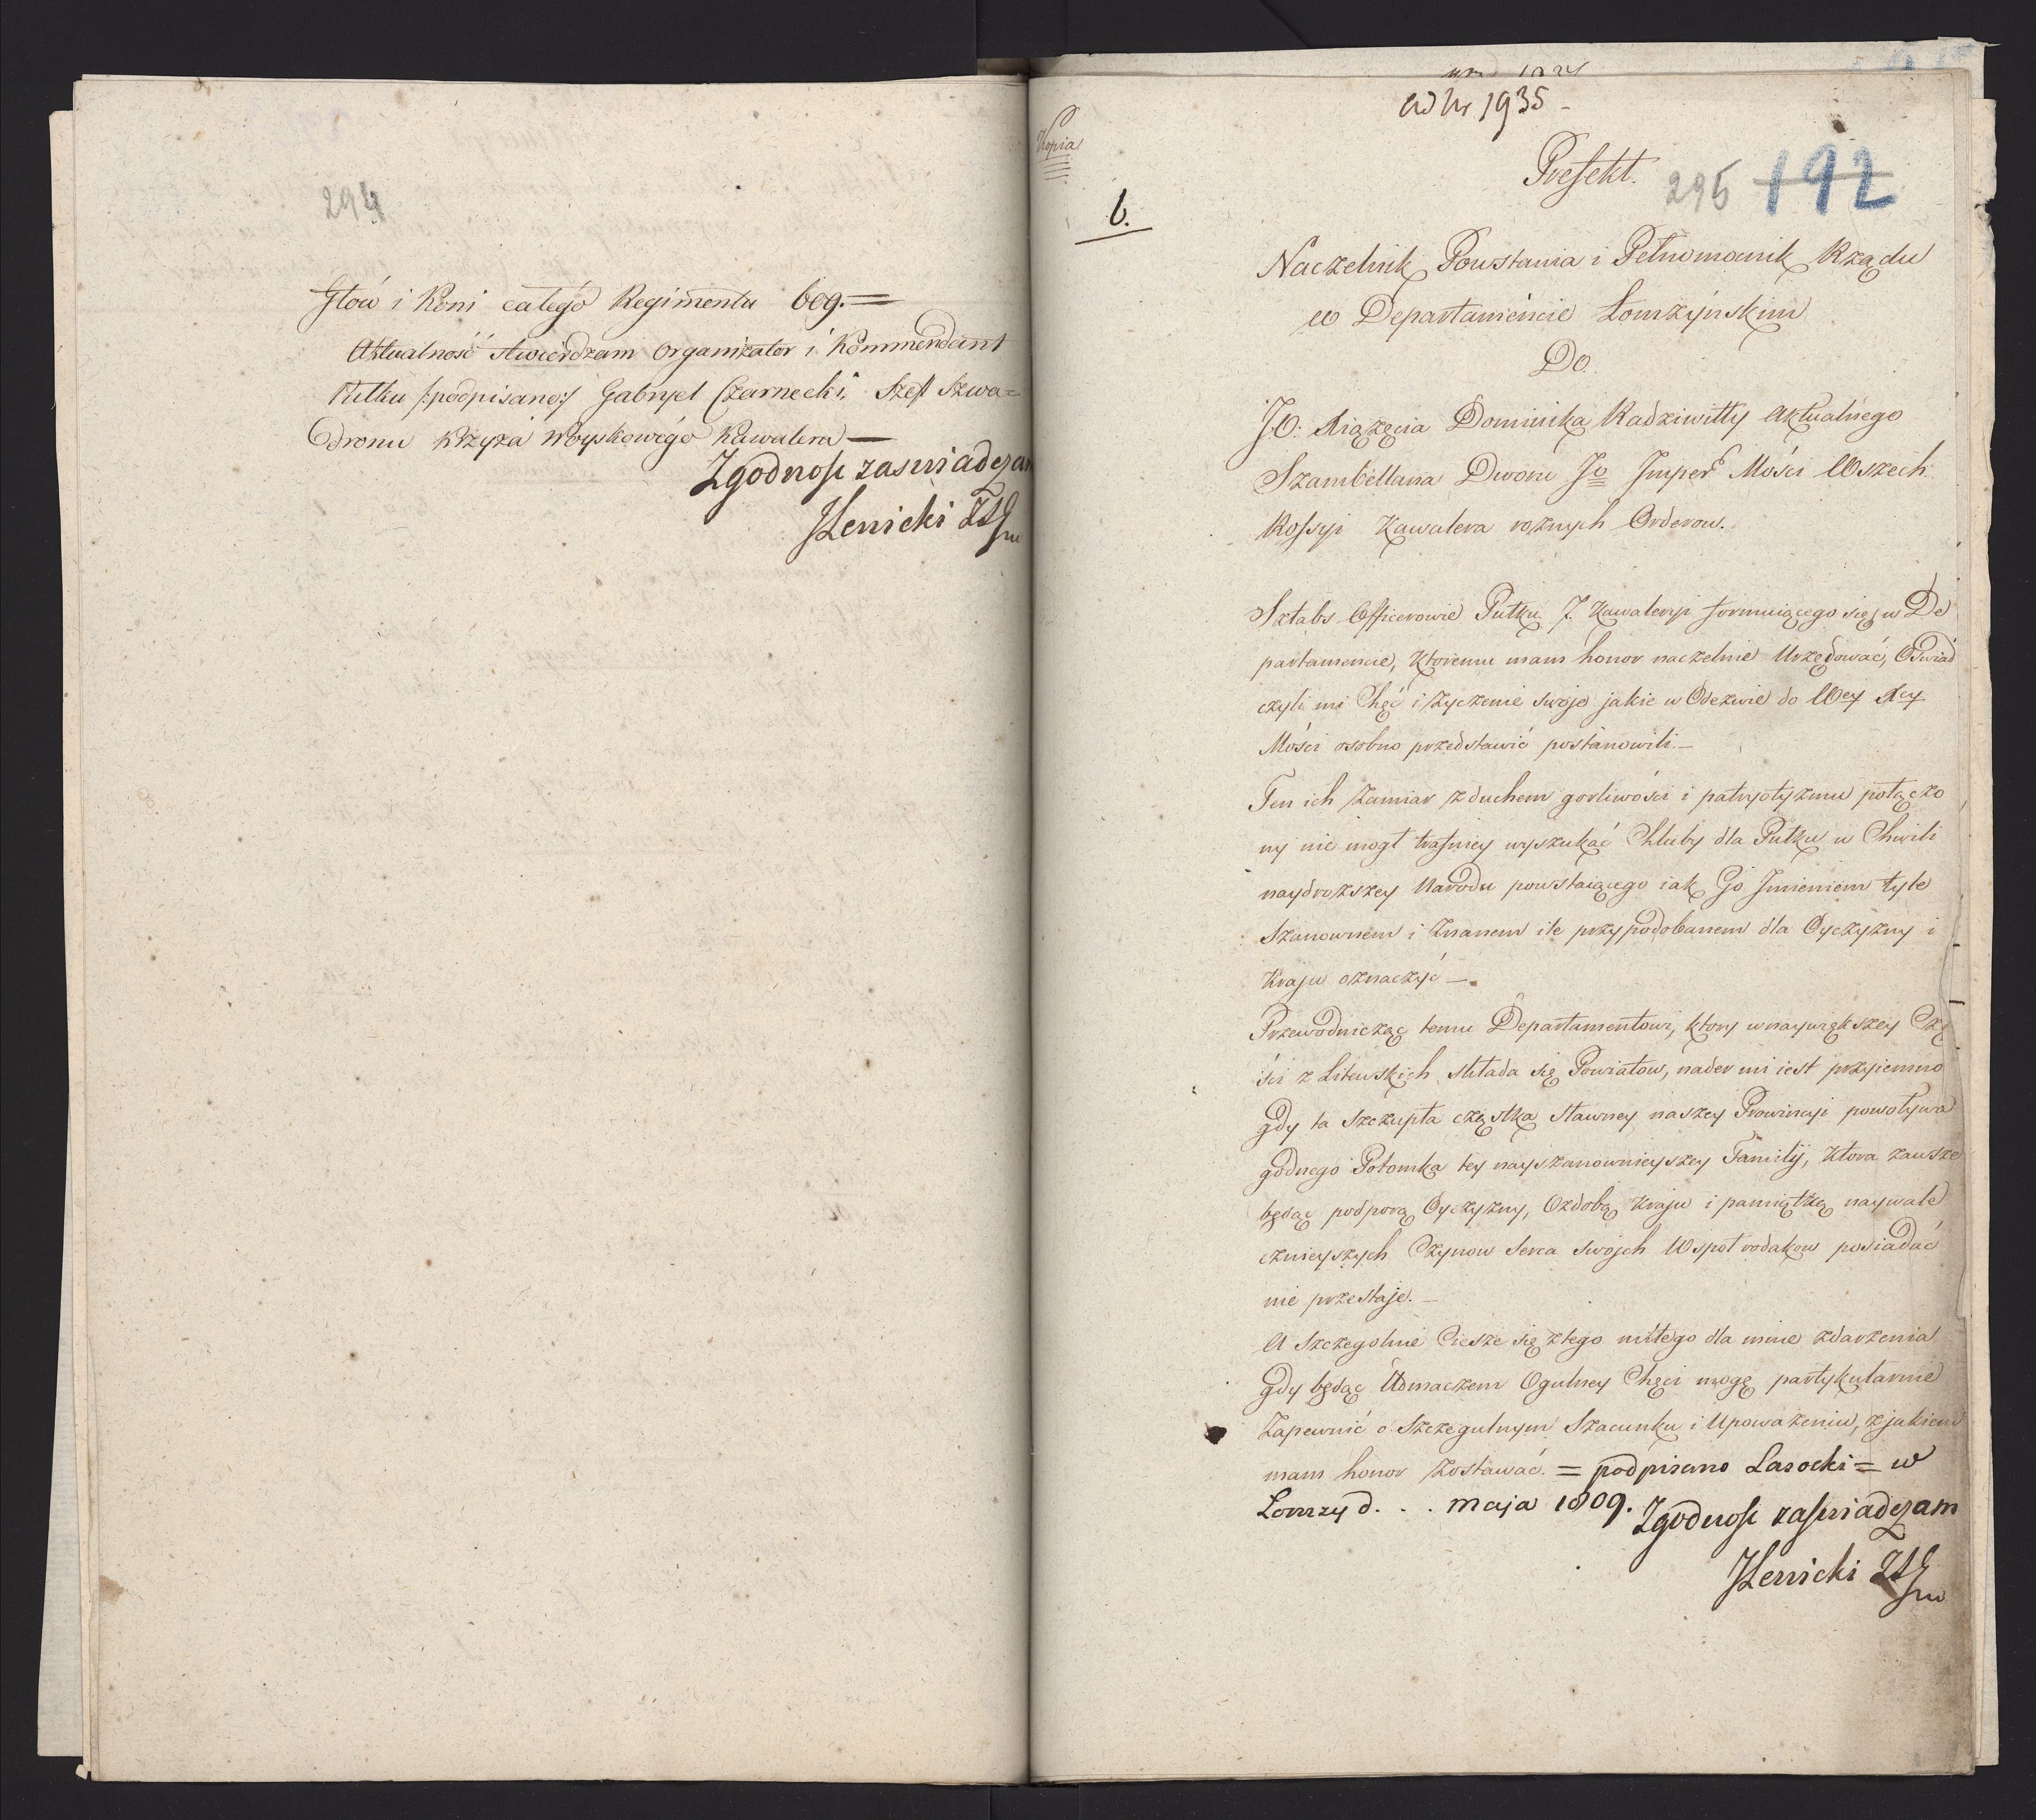 294
Głow i Koni całego Regimentu 609.=
Aktualność stwierdzam Organizator i Kommendant
Pułku /:podpisano:/ Gabryel Czarnecki, Szef Szwa=
dronu Krzyża Woyskowego Kawalera —
Zgodnosc zaswiadczam
JLenicki
Kopia
ad Nr 1935 -
Prefekt.
295 192
6.
Naczelnik Powstania i Pełnomocnik Rządu
w Departamencie Łomżyńskim
Do
JO: Xiążęcia Dominika Radziwiłły Aktualnego
Szambellana Dworu Jo Imper Mości Wszech
Rossyi Kawalera rożnych Orderow.
Sztabs Officerowie Pułku 7. Kawaleryi formuiącego się w De
partamencie, ktoremu mam honor naczelnie Urzędować, Oświad
czyli mi Chęć i życzenie swoje jakie w Odezwie do WCy Xcy
Mości osobno przedstawić postanowili. —
Ten ich zamiar z duchem gorliwości i patryotyzmu połączo
ny nie mogł trafniey wyszukać Chluby dla Pułku w Chwili
naydrozszey Narodu powstaiącego iak Go Imieniem tyle
Szanownem i Znanem ile przypodobanem dla Oyczyzny i
Kraju oznaczyć —.
Przewodnicząc temu Departamentowi, ktory w naywiększey Czę
ści z Litewskich składa się Powiatow, nader mi iest przyiemno
gdy ta szczupła cząstka sławney naszey Prowincyi powoływa
godnego Potomka tey nayszanownieyszey Familij, ktora zawsze
będąc podporą Oyczyzny, Ozdobą Kraju i pamiątką naywale
cznieyszych Czynow serca swoych Wspoł rodakow posiadać
nie przestaje. —
A szczegolnie Ciesze się z tego miłego dla mnie zdarzenia
gdy będąc tłomaczem Ogulney Chęci mogę partykularnie
Zapewnić o Szczegulnym Szacunku i Upoważeniu, z jakiem
mam honor zostawać. = podpisano Lasocki = w
Łomzy d. . . maja 1809. Zgodnosc zaswiadczam
JLenicki